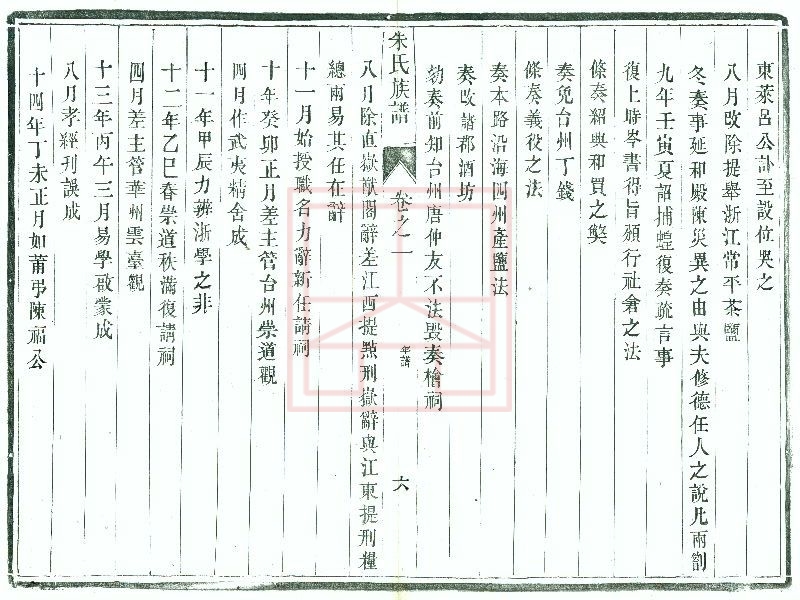 東萊呂公訃至設位哭之
八月改除提舉浙江常平茶鹽
冬奏事延和殿陳災異之由與夫修德任人之說凡兩劄
九年壬寅夏詔捕蝗復奏疏言事
復上時宰書得旨頒行社倉之法
條奏紹興和買之獘
奏免台州丁錢
條奏義役之法
奏本路沿海四州產鹽法
奏改諸郡酒坊
劾奏前知台州唐仲友不法毀秦檜祠
朱氏族譜
卷之一
年譜
六
八月除直徽猷閣辭差江西提㸃刑獄辭與江東提刑糧
總兩易其任在辭
十一月始授職名力辭新任請祠
十年癸卯正月差主管台州崇道觀
四月作武夷精舍成
十一年甲辰力辨浙學之非
十二年乙巳春崇道秩滿復請祠
四月差主管華州雲臺觀
十三年丙午三月易學啟蒙成
八月孝經刊誤成
十四年丁未正月如莆弔陳福公